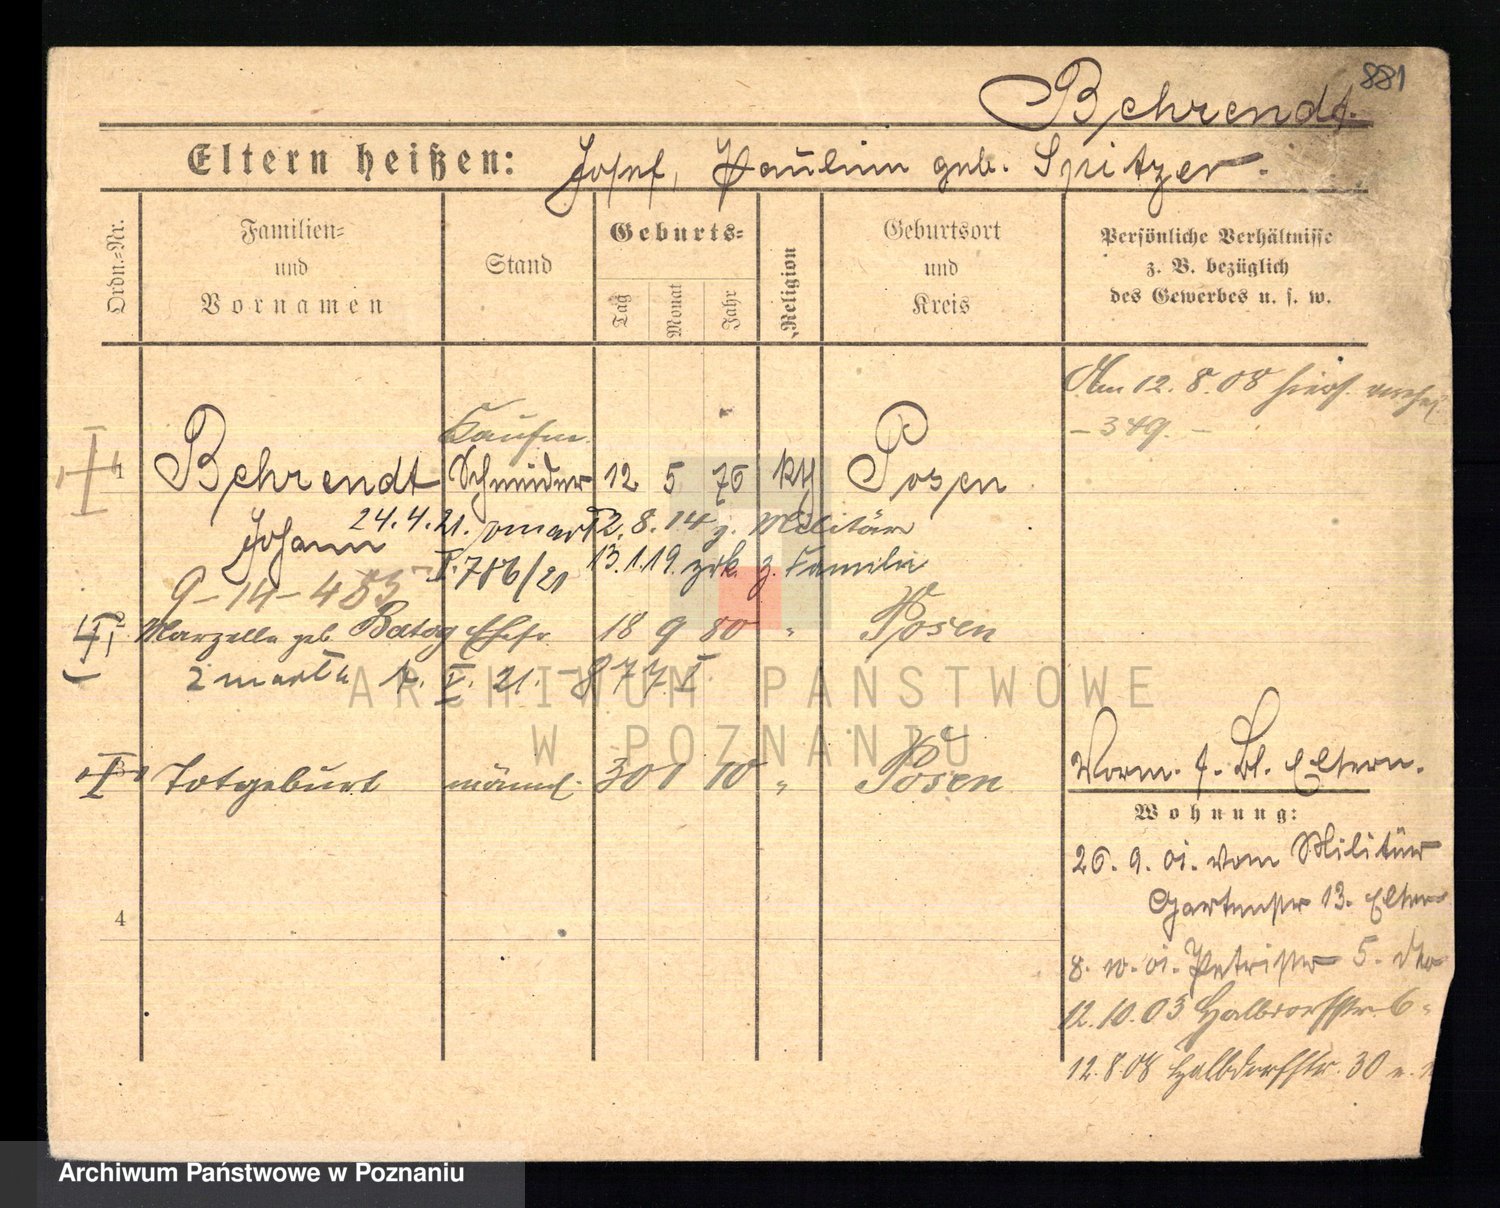 881
Behrendt.
Eltern heißen: Josef, Paulina geb. Spitzer.
Ordn.-Nr.
Familien-
und
Vornamen
Stand
Geburts-
Tag
Monat
Jahr
Religion
Geburtsort
und
Kreis
Persönliche Verhältnisse
z. B. bezüglich
des Gewerbes u. s. w.
Am 12.8.08 hiers.
- 349. -
Kaufm.
1 Behrendt Schneider 12 5 76 kth Posen
Johann 24.4.21. 2. 8. 14 z. Militär
V. 786/21 13.1.19. zrk. z. Familie
9-14-485
Marzella geb. Batog Ehefr. 18 9 80 " Posen
V. 21. - 877. I.
Totgeburt männl. 30 1 10 " Posen
Vorm. f. Bl. Eltern.
Wohnung:
26. 9. 01. vom Militär
Gartenstr 13. Eltern
8. 10. 01. Petristr 5. dto
12.10.03 Halbdorfstr. 6.
12.8.08 Halbdorfstr. 30
4
ARCHIWUM PAŃSTWOWE
W POZNANIU
Archiwum Państwowe w Poznaniu